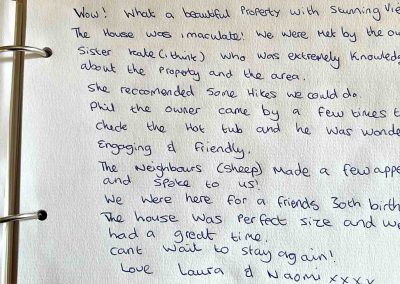 Wow! What a beautiful Property with Stunning Vie
The House was imaculate! We were met by the ow
Sister Kate (i think) who was extremely Knowledg
about the Property and the area.
She reccomended Some Hikes we could do.
Phil the owner came by a few times t
check the Hot tub and he was wonde
Engaging & friendly.
The Neighbours (sheep) Made a few appe
and spoke to us!
We were here for a friends 30th birth
The house was perfect size and we
had a great time.
cant wait to stay again!
Love Laura & Naomi xxxx